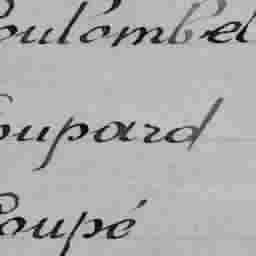 Coulombel
Coupard
Coupé